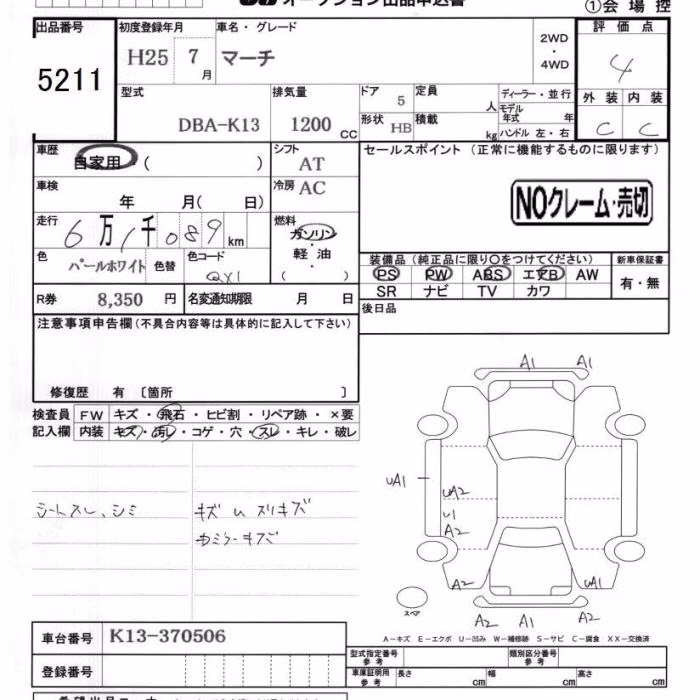 オークション出品申込書
①会場控
出品番号 初度登録年月 車名・グレード 2WD・4WD 評価点
5211 H25 7月 マーチ 4
型式 排気量 ドア 定員 ディーラー・並行 外装 内装
DBA-K13 1200 CC 5 人 モデル年式 年 C C
形状 HB 積載 kg ハンドル 左・右
車歴 自家用 ( ) シフト AT セールスポイント (正常に機能するものに限ります)
車検 年 月( 日) 冷房 AC
NOクレーム・売切
走行 6万1千089km 燃料 ガソリン・軽油 ( )
色 パールホワイト 色替 色コード QX1
装備品 (純正品に限り〇をつけてください) 新車保証書
PS PW ABS エアB AW 有・無
SR ナビ TV カワ
R券 8,350 円 名変通知期限 月 日
後日品
注意事項申告欄(不具合内容等は具体的に記入して下さい)
修復歴 有 〔箇所 〕
検査員 FW キズ・飛石・ヒビ割・リペア跡・×要
記入欄 内装 キズ・汚レ・コゲ・穴・スレ・キレ・破レ
シートスレ、シミ
キズ
スリキズ
A1 A1
UA1
UA2
U1
A2
A2 UA1
スペア
A2 A1 A2
A-キズ E-エクボ U-凹み W-補修跡 S-サビ C-腐食 XX-交換済
車台番号 K13-370506
型式指定番号 参考 類別区分番号 参考
登録番号
車庫証明用 参考 長さ cm 幅 cm 高さ cm